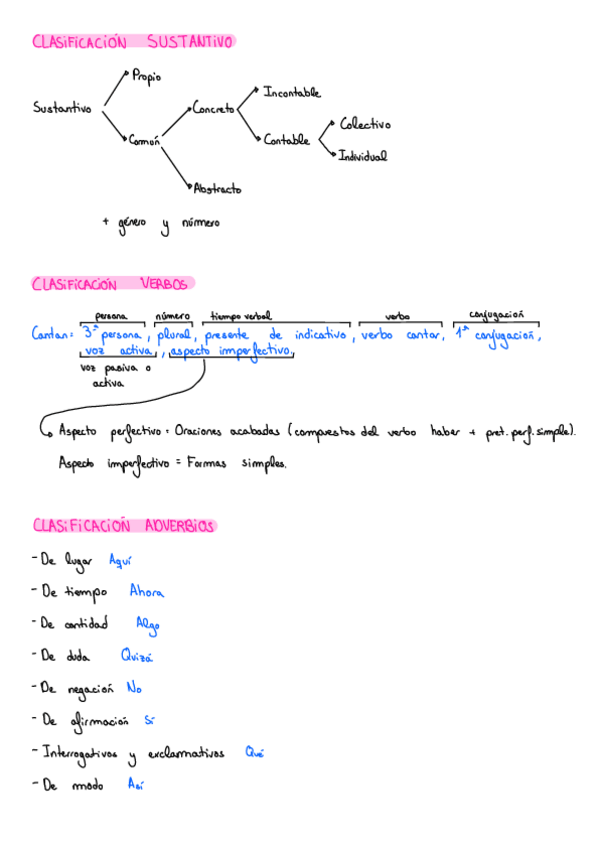 CLASIFICACIÓN SUSTANTIVO
Propio
Incontable
Sustantivo
Concreto
Colectivo
Común
Contable
Individual
Abstracto
+ género y número
CLASIFICACIÓN VERBOS
persona número tiempo verbal verbo conjugación
Cantan: 3ª persona, plural, presente de indicativo, verbo cantar, 1ª conjugación,
voz activa, aspecto imperfectivo.
voz pasiva o
activa
Aspecto perfectivo = Oraciones acabadas (compuestos del verbo haber + pret. perf. simple).
Aspecto imperfectivo = Formas simples.
CLASIFICACIÓN ADVERBIOS
- De lugar Aquí
- De tiempo Ahora
- De cantidad Algo
- De duda Quizá
- De negación No
- De afirmación Sí
- Interrogativos y exclamativos Qué
- De modo Así